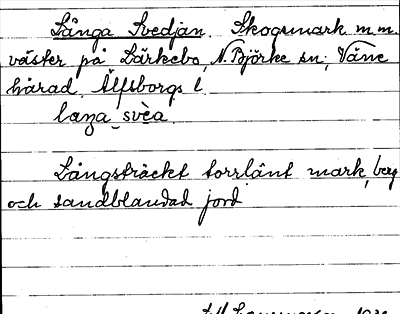 Långa Svedjan. Skogsmark m.m.
väster på Lärkebo, N. Björke sn, Väne
härad, Älfsborgs l.
laŋa svèa.
Långsträckt torrlänt mark, berg
och sandblandad jord